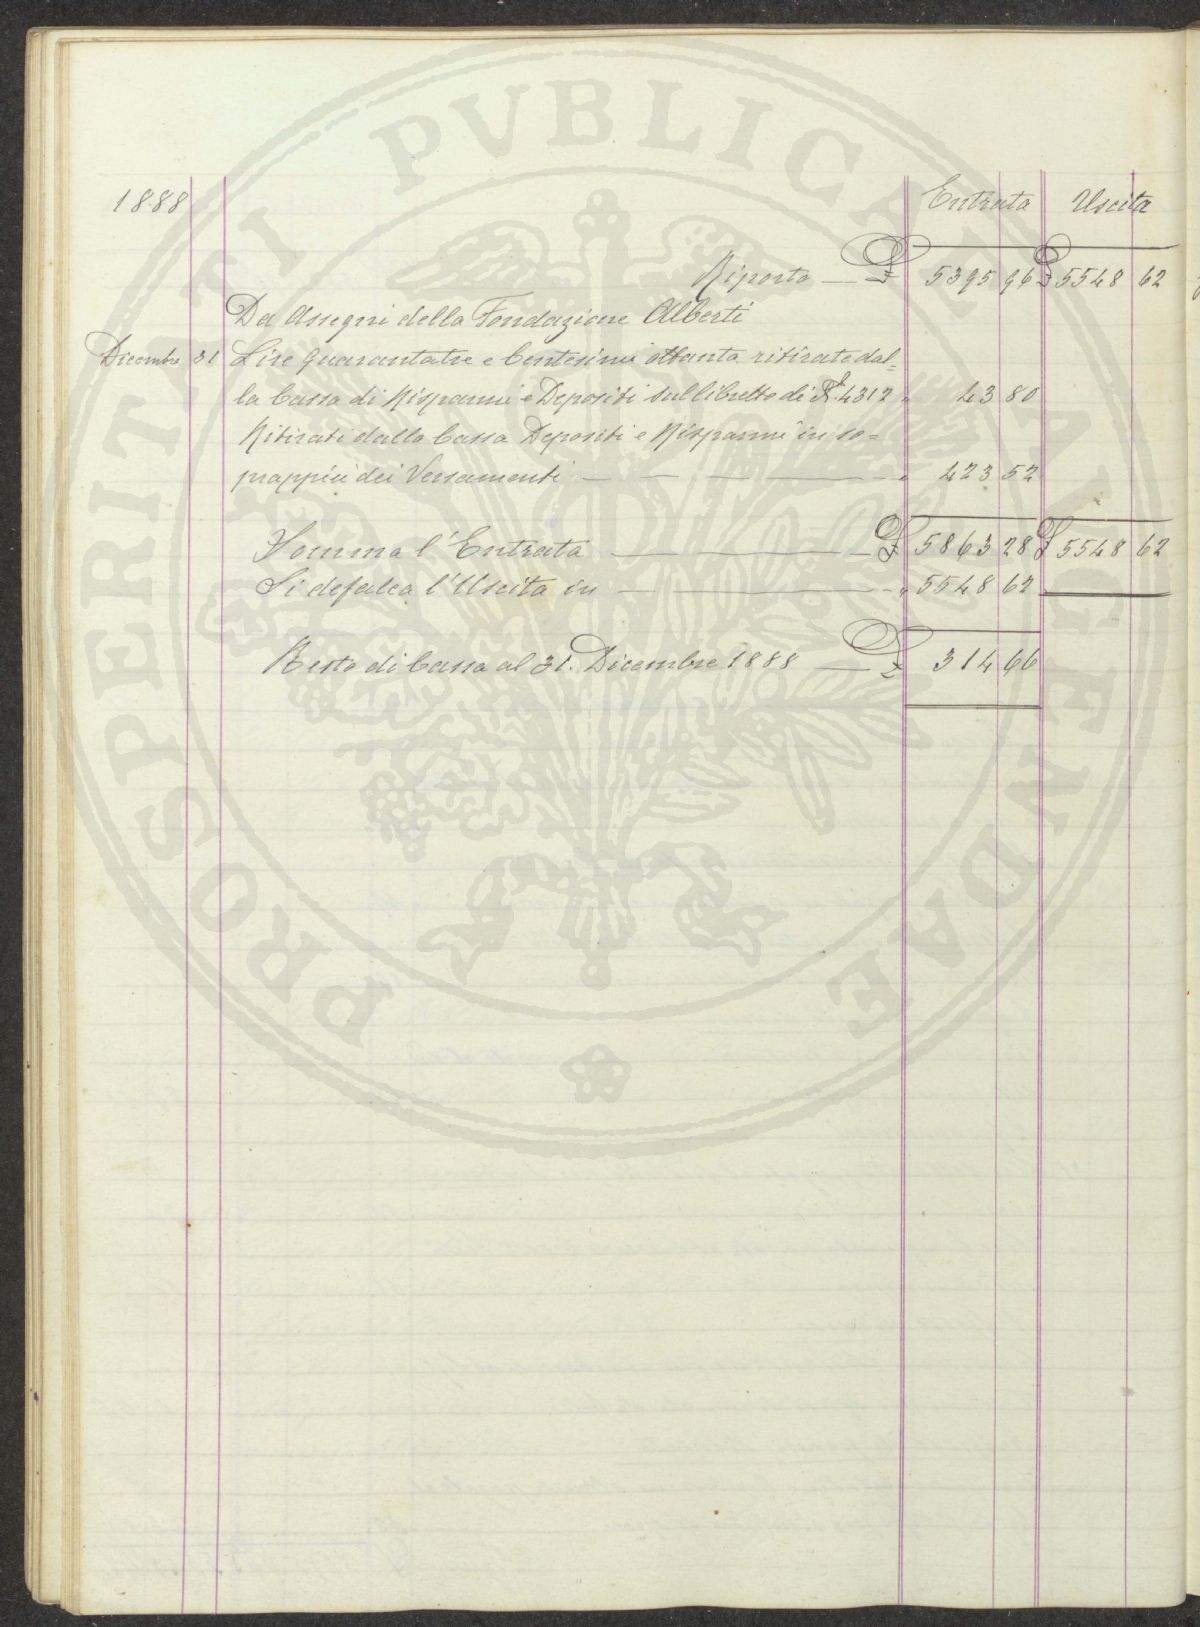 PROSPERITATI PVBLICAE AVGENDAE
1888 Entrata Uscita
Riporto — £ 5395 96 £ 5548 62
Da Assegni della Fondazione Alberti
Dicembre 31 Lire Quarantatre e Centesimi ottanta ritirate dal-
la Cassa di Risparmi e Depositi sul libretto di N. 4312 " 43 80
Ritirati dalla Cassa Depositi e Risparmi in so=
prappiù dei Versamenti — — — — " 423 52
Somma l'Entrata — £ 5863 28 £ 5548 62
Si defalca l'Uscita in — — " 5548 62
Resto di Cassa al 31. Dicembre 1888 — £ 314 66